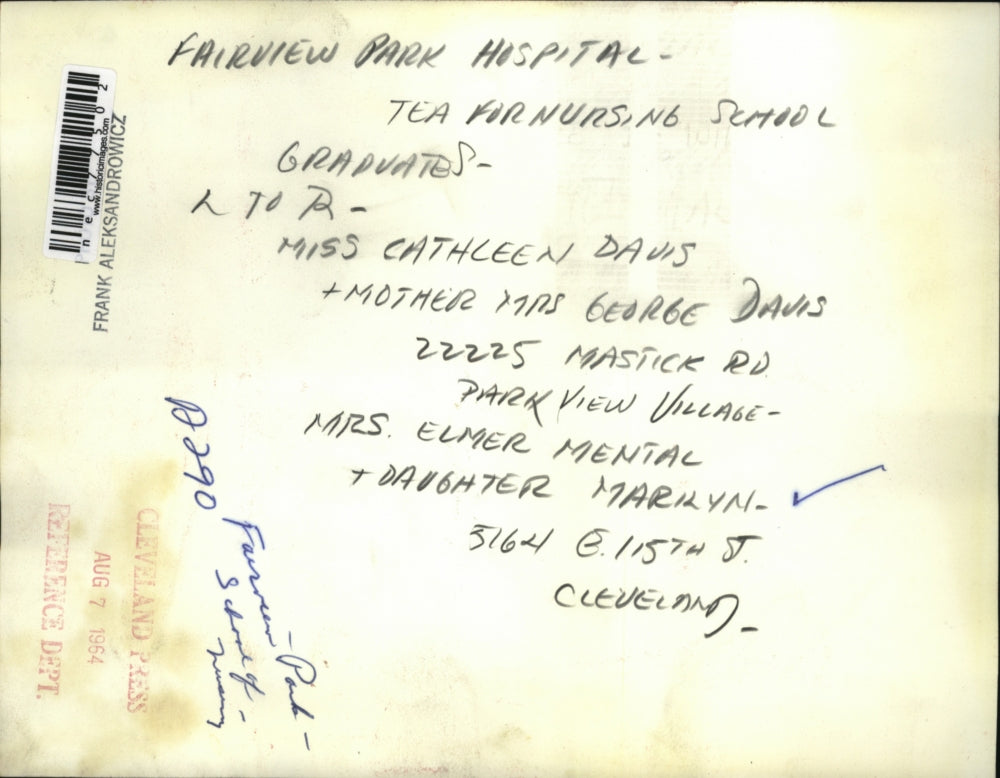 FAIRVIEW PARK HOSPITAL -
TEA FOR NURSING SCHOOL
GRADUATES -
L TO R -
MISS CATHLEEN DAVIS
+ MOTHER MRS GEORGE DAVIS
22225 MASTICK RD
PARK VIEW VILLAGE -
MRS. ELMER MENTAL
+ DAUGHTER MARILYN -
3164 E. 115TH ST.
CLEVELAND -
www.historicimages.com
FRANK ALEKSANDROWICZ
A290
Fairview - Park -
School of -
Nursing
CLEVELAND PRESS
AUG 7 1964
REFERENCE DEPT.